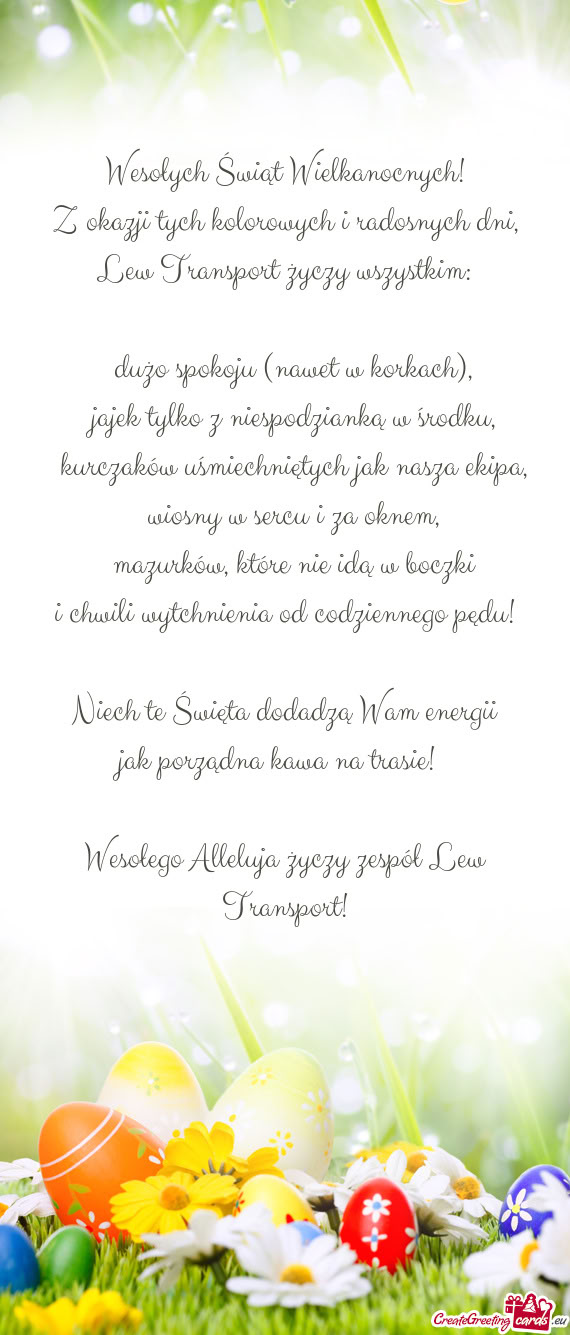 Wesołych Świąt Wielkanocnych!
Z okazji tych kolorowych i radosnych dni,
Lew Transport życzy wszystkim:
dużo spokoju (nawet w korkach),
jajek tylko z niespodzianką w środku,
kurczaków uśmiechniętych jak nasza ekipa,
wiosny w sercu i za oknem,
mazurków, które nie idą w boczki
i chwili wytchnienia od codziennego pędu!
Niech te Święta dodadzą Wam energii
jak porządna kawa na trasie!
Wesołego Alleluja życzy zespół Lew
Transport!
CreateGreeting cards .eu